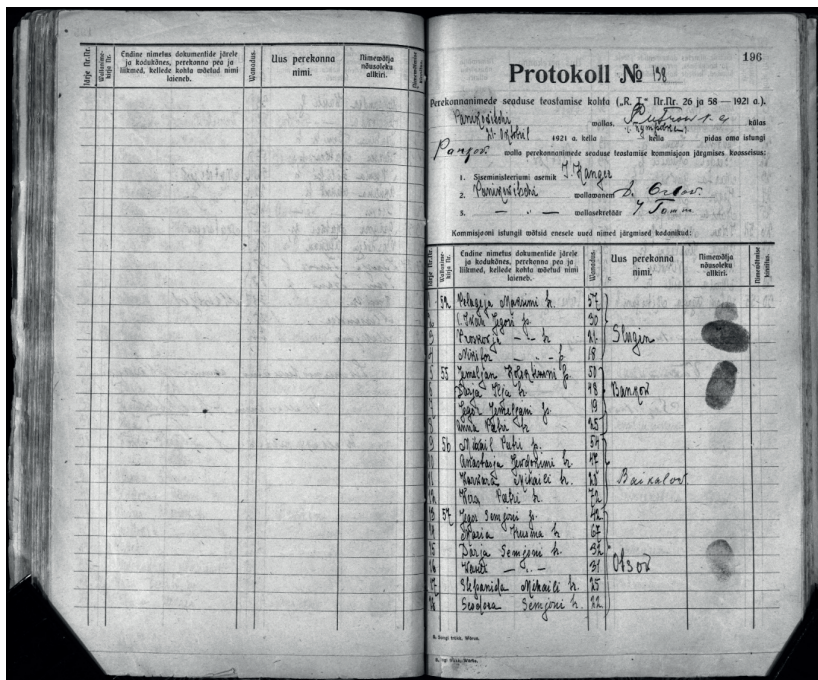 Järje Nr.Nr.
Wallanimekirja Nr.
Endine nimetus dokumentide järele
ja kodukõnes, perekonna pea ja
liikmed, kellede kohta wõetud nimi
laieneb.
Wanadus.
Uus perekonna
nimi.
Nimewõtja
nõusoleku
allkiri.
196
Protokoll № 198
Perekonnanimede seaduse teostamise kohta („R. T.“ Nr.Nr. 26 ja 58 — 1921 a.).
wallas.
külas
1921 a. kella
kella
pidas oma istungi
walla perekonnanimede seaduse teostamise komisjon järgmises koosseisus:
1. Siseministeeriumi asemik J. Kanger
2. wallawanem Orlov
3. — „ — wallasekretäär J Tomm
Kommisjoni istungil wõtsid enesele uued nimed järgmised kodanikud:
Järje Nr.Nr.
Wallanimekirja Nr.
Endine nimetus dokumentide järele
ja kodukõnes, perekonna pea ja
liikmed, kellede kohta wõetud nimi
laieneb.
Wanadus.
Uus perekonna
nimi.
Nimewõtja
nõusoleku
allkiri.
Nimewõtmise
kinnitus.
Pelageja Maksimi t. 57
Jegori p. 30
t. 21 Slugin
Nikifor — „ — p. 18
5 55 Jemeljan p. 50
6 Darja Ilja t. 48 Bankov
7 Jegor Jemeljani p. 19
8 Anna Petri t. 25
9 56 Mihail Petri p. 54
10 Anastasja t. 47
11 Warwara Mihaili t. 28 Baikalov
12 Wera Petri t. 72
13 57 Jegor Semjoni p. 42
14 Maria Kusma t. 67
15 Darja Semjoni t. 32
16 — „ — 31
17 Stepanida Mihaili t. 25
18 Feodora Semjoni t. 22
S. Songi trükk, Wõrus.
S. Songi trükk, Wõrus.